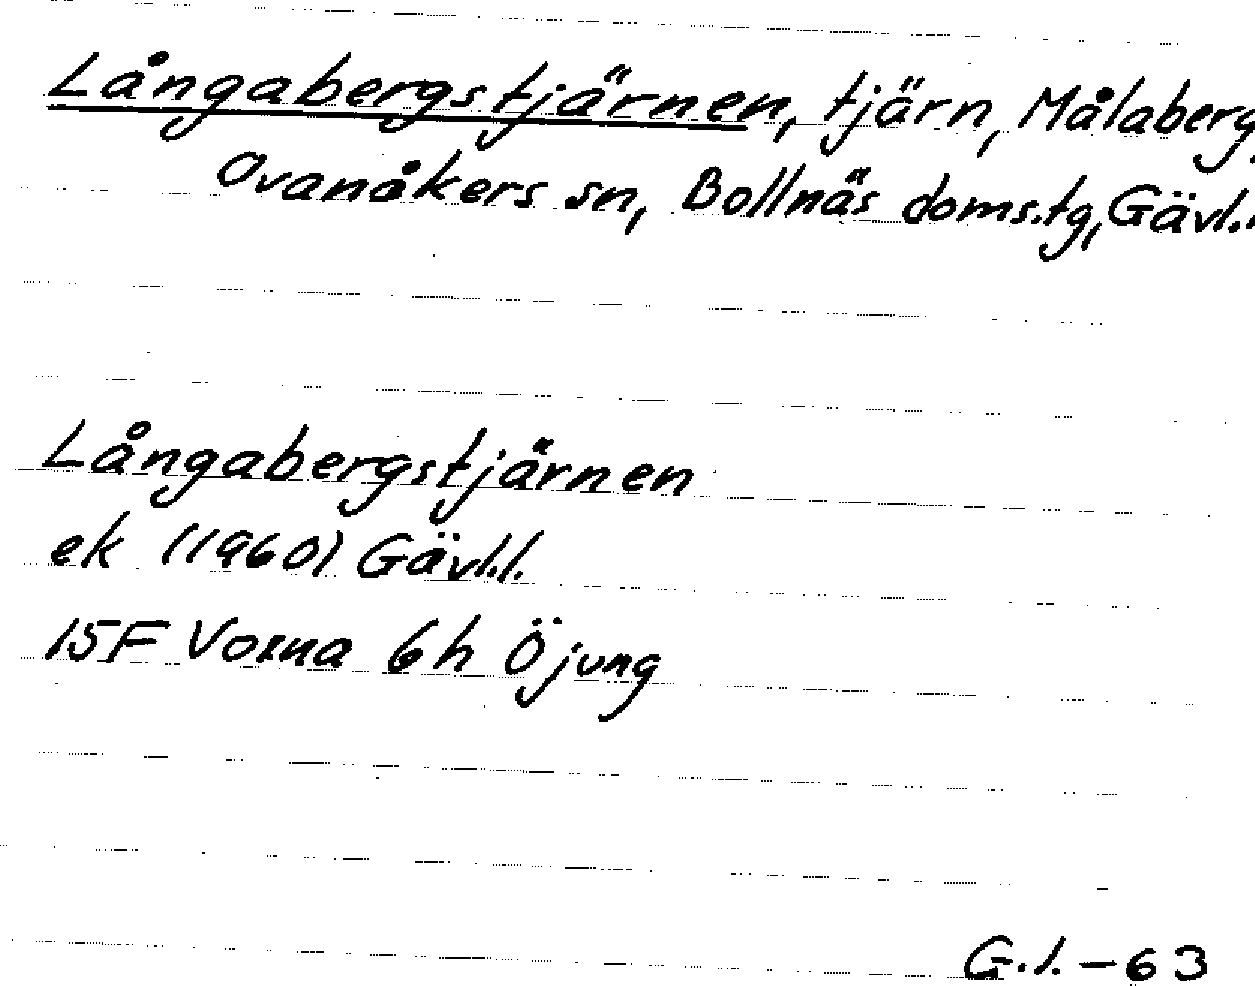 Långabergstjärnen, tjärn, Målaberg,
Ovanåkers sn, Bollnäs doms.tg, Gävl.l
Långabergstjärnen
ek (1960) Gävl.l.
15F Voxna 6h Öjung
G.l.-63